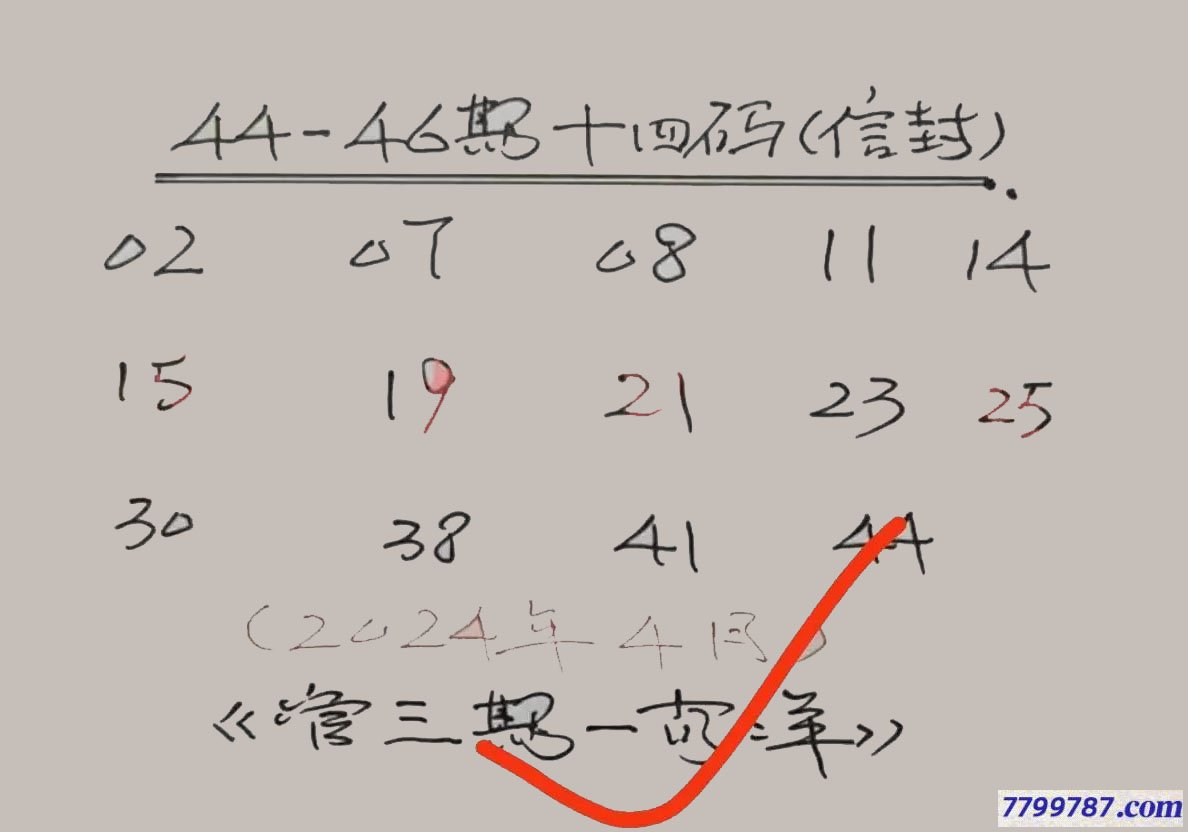 44-46期十四码(信封)
02 07 08 11 14
15 19 21 23 25
30 38 41 44
(2024年4月)
《管三期一句:羊》
7799787.com